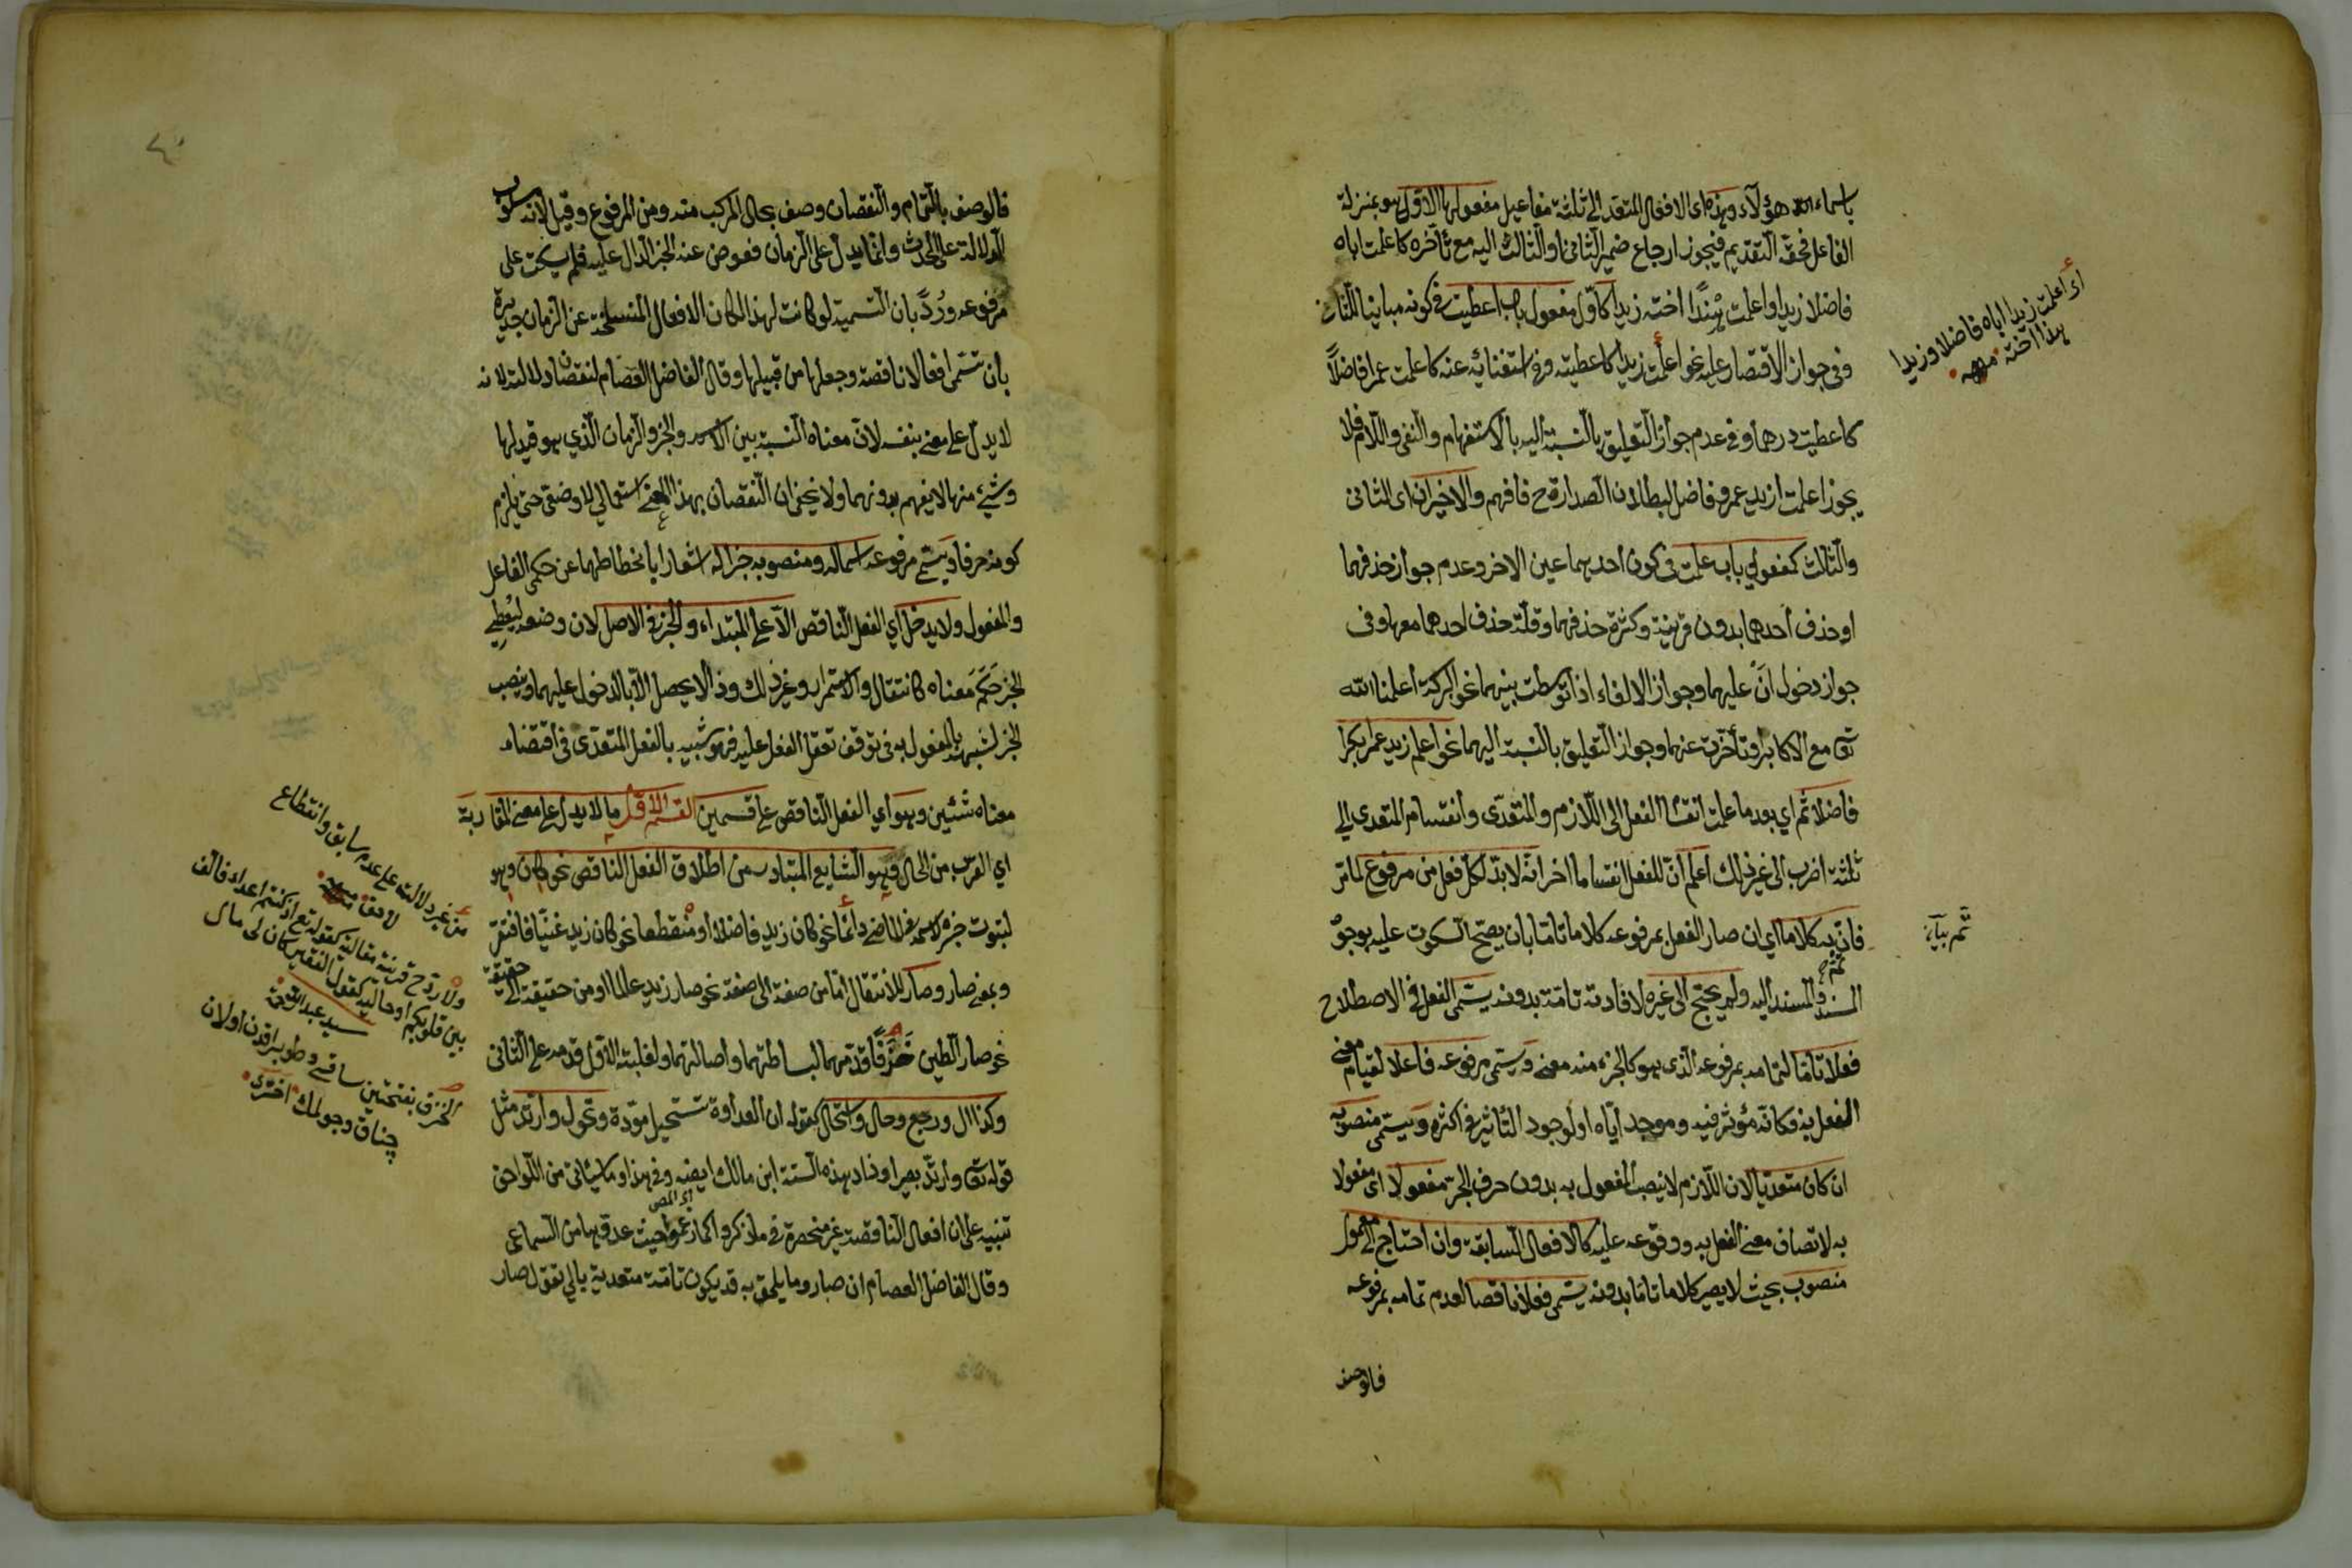 باسماء هؤلاء وهذه اى الافعال المتعدية الى ثلثة مفاعيل مفعولها الاول هو بمنزلة
الفاعل فحقه التقديم فيجوز ارجاع ضمير الثانى والثالث اليه مع تأخره كاعلمت اباه
فاضلا زيدا واعلمت هندا اخته زيدا كاول مفعول باب اعطيت فى كونه مباينا للثانى
وفى جواز الاقتصار عليه نحو اعلمت زيدا كاعطيته وفى استغنائه عنه كاعلمت عمرا فاضلاً
كاعطيت درهما وفى عدم جواز التعليق بالنسبة اليه بالاستفهام والنفى واللام فلا
يجوز اعلمت ازيد عمرو فاضل لبطلان الصدارة ح فافهم والاخيران اى الثانى
والثالث كمفعولي باب علمت فى كون احدهما عين الاخر وعدم جواز حذفهما
او حذف احدهما بدون قرينة وكثرة حذفهما وقلة حذف احدهما معها وفى
جواز دخول انّ عليهما وجواز الالغاء اذا توسطت بينهما نحو البركة اعلمنا الله
تعا مع الاكابر او تأخرت عنهما وجواز التعليق بالنسبة اليهما نحو اعلم زيد عمرا بكرا
فاضلا ثم اي بعد ما علمت انقسام الفعل الى اللازم والمتعدّى وانقسام المتعدى الى
ثلثة اضرب الى غير ذلك اعلم انّ للفعل انقساما اخر انّه لا بدّ لكلّ فعل من مرفوع لما مرّ
فان تم به كلاما اي ان صار الفعل بمرفوعه كلاما تاما بان يصحّ السكوت عليه بوجود
المسند والمسند اليه ولم يحتج الى غيره لافادته تامة بدونه يسمى الفعل فى الاصطلاح
فعلا تاما لتمامه بمرفوعه الذى هو كالجزء منه معنى ويسمى مرفوعه فاعلا لقيام معنى
الفعل به فكانّه مؤثر فيه وموجد ايّاه او لوجود التأثير فى اكثره ويسمى منصوبه
ان كان متعديا لان اللازم لا ينصب المفعول به بدون حرف الجر مفعولا اى مفعولا
به لاتصاف معنى الفعل به ووقوعه عليه كالافعال السابقة وان احتاج الى معمول
منصوب بحيث لا يصير كلاما تاما بدونه يسمى فعلا ناقصا لعدم تمامه بمرفوعه
فالوصف
اى اعلمت زيدا اباه فاضلا وزيدا
هندا اخته منه
تم بيان
فالوصف بالتمام والنقصان وصف بحال المركب منه ومن المرفوع وقيل لانه مسلوب
الدلالة على الحدث وانما يدل على الزمان فعوض عنه الخبر الدال عليه فلم يسكت على
مرفوعه ورُدّ بان التسمية لو كانت لهذا لكان الافعال المنسلخة عن الزمان جديرة
بان تسمى افعالا ناقصة وجعلها من قبيلها وقال الفاضل العصام لنقصان دلالته لانه
لا يدل على معنى بنفسه لانّ معناه النسبة بين الاسم والخبر والزمان الذي هو قيد لها
وشئ منها لا يفهم بدونهما ولا يخفى ان النقصان بهذا المعنى استعمالي لا وضعى حتى يلزم
كونه حرفا ويسمى مرفوعه اسما له ومنصوبه خبرا له اشعارا بانحطاطهما عن حكمى الفاعل
والمفعول ولا يدخل اي الفعل الناقص الا على المبتداء والخبر فى الاصل لان وضعه ليُعطِي
الخبر حكم معناه كانتقال والاستمرار وغير ذلك وذا لا يحصل الا بالدخول عليهما وينصب
الخبر لشبهه بالمفعول به فى توقف تعقل الفعل عليه فهو شبيه بالفعل المتعدّى فى اقتضاء
معناه شئين وهو اي الفعل الناقص على قسمين القسم الاول ما لا يدل على معنى المقاربة
اي القرب من الحال وهو الشايع المتبادر من اطلاق الفعل الناقص نحو كان وهو
لثبوت خبره لاسمه فى الماضى دائما نحو كان زيد فاضلا او منقطعا نحو كان زيد غنيّا فافتقر
وبمعنى صار وصار للانتقال اما من صفة الى صفة نحو صار زيد عالما او من حقيقة الى حقيقة
نحو صار الطين خزفًا وقدمهما لبساطتهما واصالتهما ولغلبة الاول قدمه على الثانى
وكذا ال ورجع وحال واستحال كقوله ان العداوة تستحيل مودّة وتحول وارتد مثل
قوله تعا وارتدّ بصيرا وزاد بهذه الستة ابن مالك ايضه وفى هذا وما سيأتى من اللواحق
تنبيه على ان افعال الناقصة غير منحصرة فى ما ذكروا كما زعموا حيث عدوها من السماعى
اى المص
وقال الفاضل العصام ان صار وما يلحق به قد يكون تامة متعدية بالي تقول صار
من غير دلالة على عدم سابق وانقطاع
لاحق منه
ولا بد ح قرينة مقالية كقوله تع اذ كنتم اعداء فالف
بين قلوبكم او حالية كقول الفقير كان لى مال
سيد عبد الله
الخزف بفتحتين ساقسى وطوپراقدن اولان
چناق وچولمك اخترى